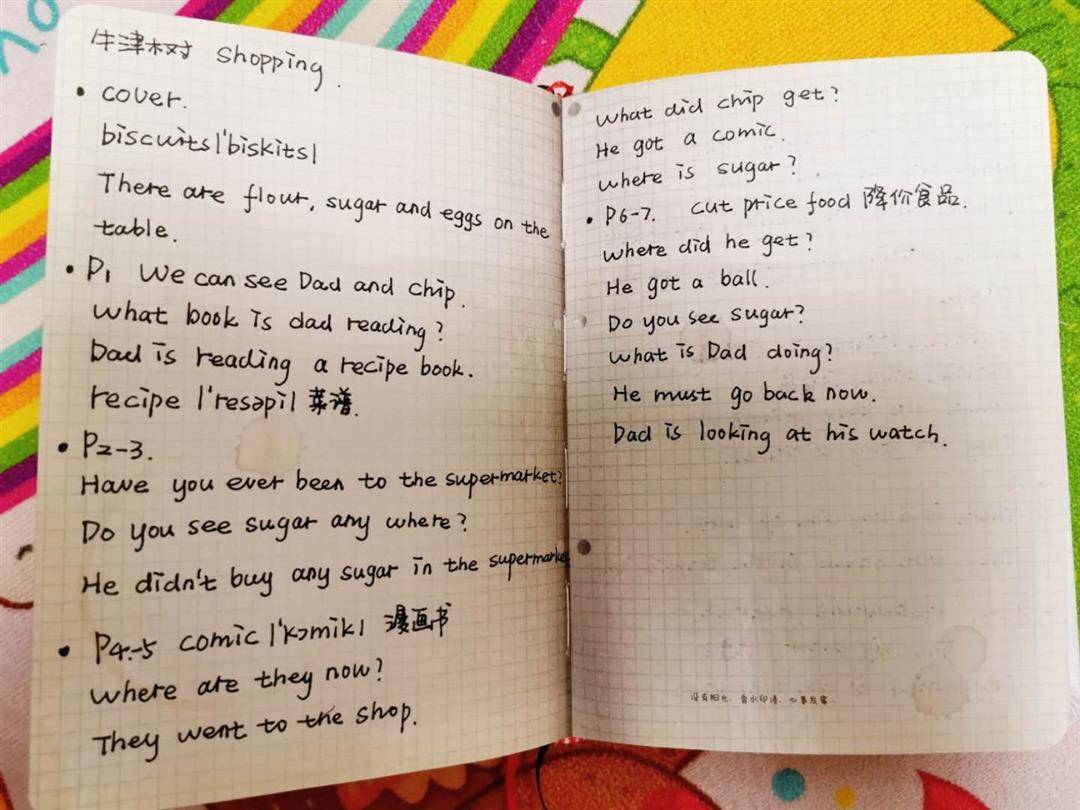 牛津树 shopping.
• cover.
biscuits |'biskits|
There are flour, sugar and eggs on the
table.
• P1 We can see Dad and chip.
What book is dad reading?
Dad is reading a recipe book.
recipe |'resəpi| 菜谱.
• P2-3.
Have you ever been to the supermarket?
Do you see sugar any where?
He didn't buy any sugar in the supermarket
• P4-5 comic |'kɔmik| 漫画书
Where are they now?
They went to the shop.
What did chip get?
He got a comic.
Where is sugar?
• P6-7. cut price food 降价食品.
Where did he get?
He got a ball.
Do you see sugar?
What is Dad doing?
He must go back now.
Dad is looking at his watch.
没有阳光,